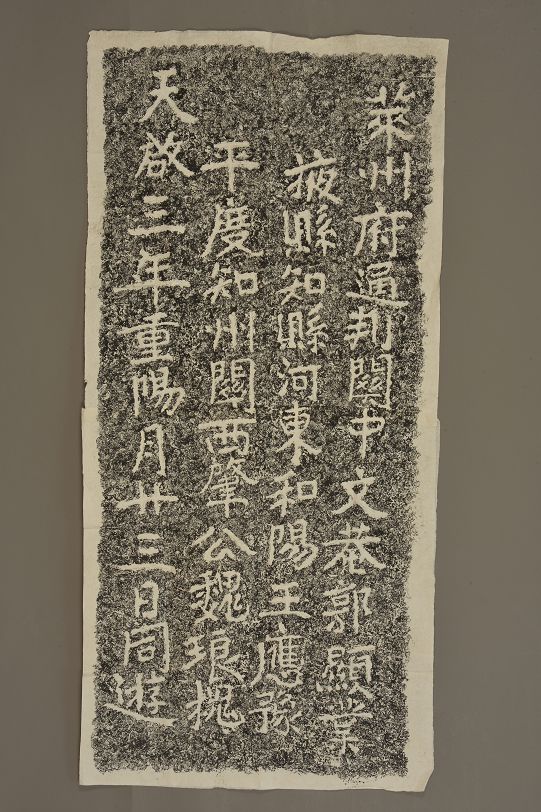 萊州府通判關中文菴郭顯業
掖縣知縣河東和陽王應豫
平度知州關西肇公魏琅槐
天啟三年重陽月廿三日同遊